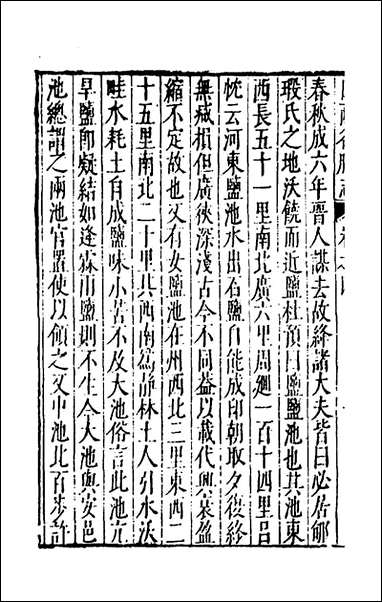 春秋成六年晉人謀去故絳諸大夫皆曰必居郇
瑕氏之地沃饒而近鹽杜預曰鹽鹽池也其池東
西長五十一里南北廣六里周廻一百一十四里呂
忱云河東鹽池水出石鹽自能成印朝取夕復終
無減損但廣狹深淺古今不同益以載代興衰盈
縮不定故也又有女鹽池在州西北三里東西二
十五里南北二十里其西南為靜林土人引水沃
畦水耗土自成鹽味小苦不及大池俗言此池亢
旱鹽即凝結如逢霖雨鹽則不生今大池與安邑
池總謂之兩池官置使以領之又中池北百步許